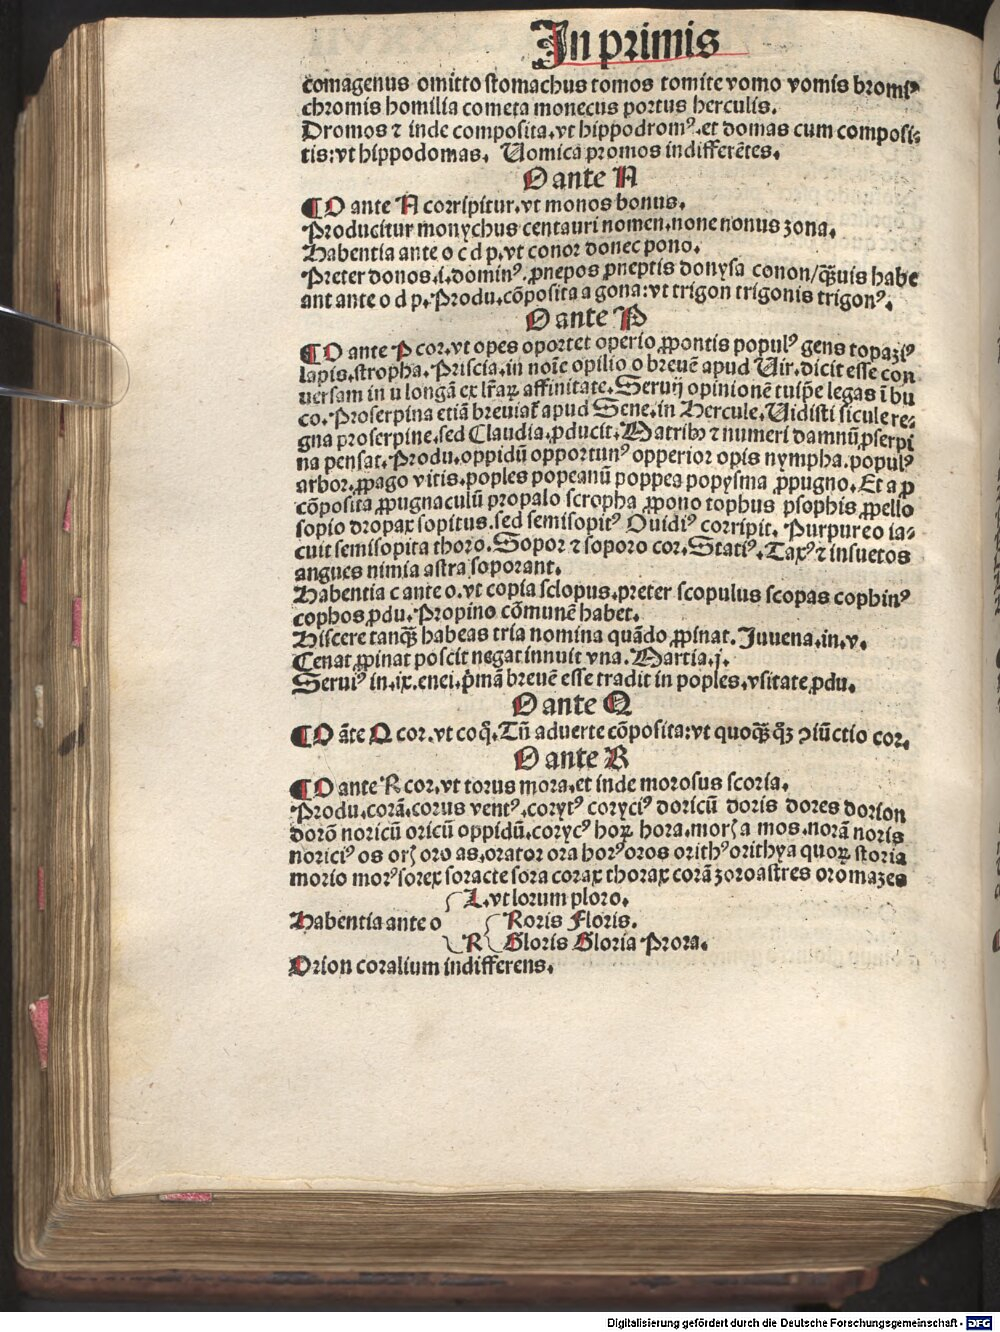 In primis
comagenus omitto stomachus tomos tomice vomo vomis bromiꝰ
chromis homilia cometa monecus portus herculis.
Dromos ⁊ inde composita.vt hippodromꝰ.et domas cum composi-
tis:vt hippodomas. Uomica promos indifferẽtes.
O ante N
¶O ante N corripitur.vt monos bonus.
Producitur monychus centauri nomen.none nonus zona.
Habentia ante o c d p.vt conor donec pono.
Preter donos.i.dominꝰ.ꝓnepos ꝓneptis donysa conon/qͣꝫuis habe
ant ante o d p.Produ.cõposita a gona:vt trigon trigonis trigonꝰ.
O ante P
¶O ante P cor.vt opes oportet operio ꝓpontis populꝰ gens topaziꝰ
lapis.stropha.Priscia.in noĩe opilio o breuẽ apud Uir.dicit esse con
uersam in u longã ex lr̃aꝝ affinitate.Seruij opinionẽ tuĩpe legas ĩ bu
co.Proserpina etiã breuiat̃ apud Sene.in Hercule.Uidisti sicule re-
gna proserpine.sed Claudia.ꝓducit.Matribꝰ ⁊ numeri damnũ ꝓserpi
na pensat.Produ.oppidũ opportunꝰ opperior opis nympha.populꝰ
arbor.ꝓpago vitis.poples popeanũ poppea popysma ꝓpugno.Et a ꝓ
cõposita ꝓpugnaculũ propalo scropha ꝓpono tophus psophis ꝓpello
sopio dropax sopitus.sed semisopitꝰ Ouidiꝰ corripit. Purpureo ia-
cuit semisopita thoro.Sopor ⁊ soporo cor.Statiꝰ.Taxꝰ ⁊ insuetos
angues nimia astra soporant.
Habentia c ante o.vt copia sclopus.preter scopulus scopas cophinꝰ
cophos ꝓdu.Propino cõmunẽ habet.
Hiscere tanqͣꝫ habeas tria nomina quãdo ꝓpinat.Juuena.in.v.
Cenat ꝓpinat poscit negat innuit vna.Martia.j.
Seruiꝰ in.ix.enei.pͥmã breuẽ esse tradit in poples.vsitate ꝓdu.
O ante Q
¶O ãte Q cor.vt coqͥ.Tñ aduerte cõposita:vt quoqͣꝫ qꝫ ꝯiũctio cor.
O ante R
¶O ante R cor.vt torus mora.et inde morosus scoria.
Produ.corã.corus ventꝰ.corytꝰ coryciꝰ doricũ doris dores dorion
dorõ noricũ oricũ oppidũ.corycꝰ hoꝝ hora.morꝭ a mos.norã noris
noriciꝰ os orꝭ oro as.orator ora horꝰ oros orithꝰ orithya quoꝝ storia
morio morꝰ sorex soracte sora corax thorax corã zoroastres oromazes
L.vt lorum ploro.
Habentia ante o Roris Floris.
R Gloris Gloria Prora.
Orion coralium indifferens.
Digitalisierung gefördert durch die Deutsche Forschungsgemeinschaft - DFG